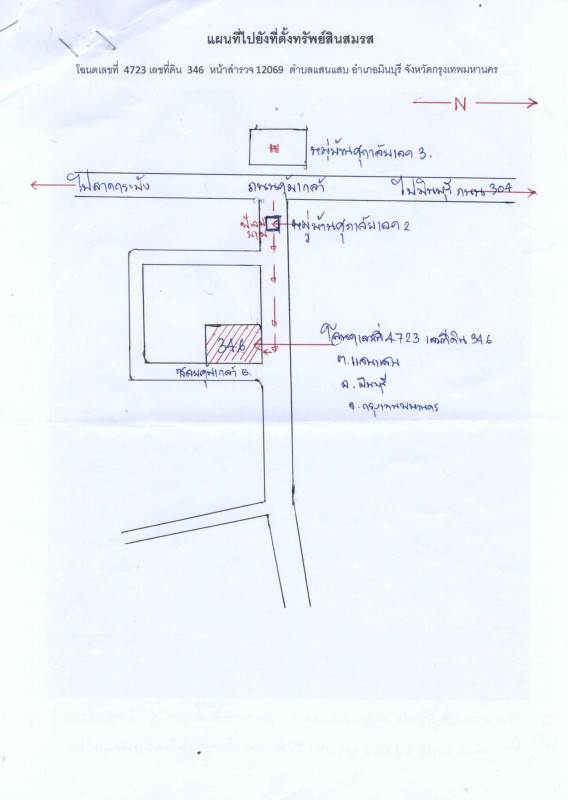 แผนที่ไปยังที่ตั้งทรัพย์สินสมรส
โฉนดเลขที่ 4723 เลขที่ดิน 346 หน้าสำรวจ 12069 ตำบลแสนแสบ อำเภอมีนบุรี จังหวัดกรุงเทพมหานคร
N
หมู่บ้านศุภาลัยเลค 3.
ไปลาดกระบัง
ถนนคุ้มเกล้า
ไปมีนบุรี ถนน 304
ป้อม
ยาม
หมู่บ้านศุภาลัยเลค 2
346
โฉนดเลขที่ 4723 เลขที่ดิน 346
ต.แสนแสบ
อ.มีนบุรี
จ.กรุงเทพมหานคร